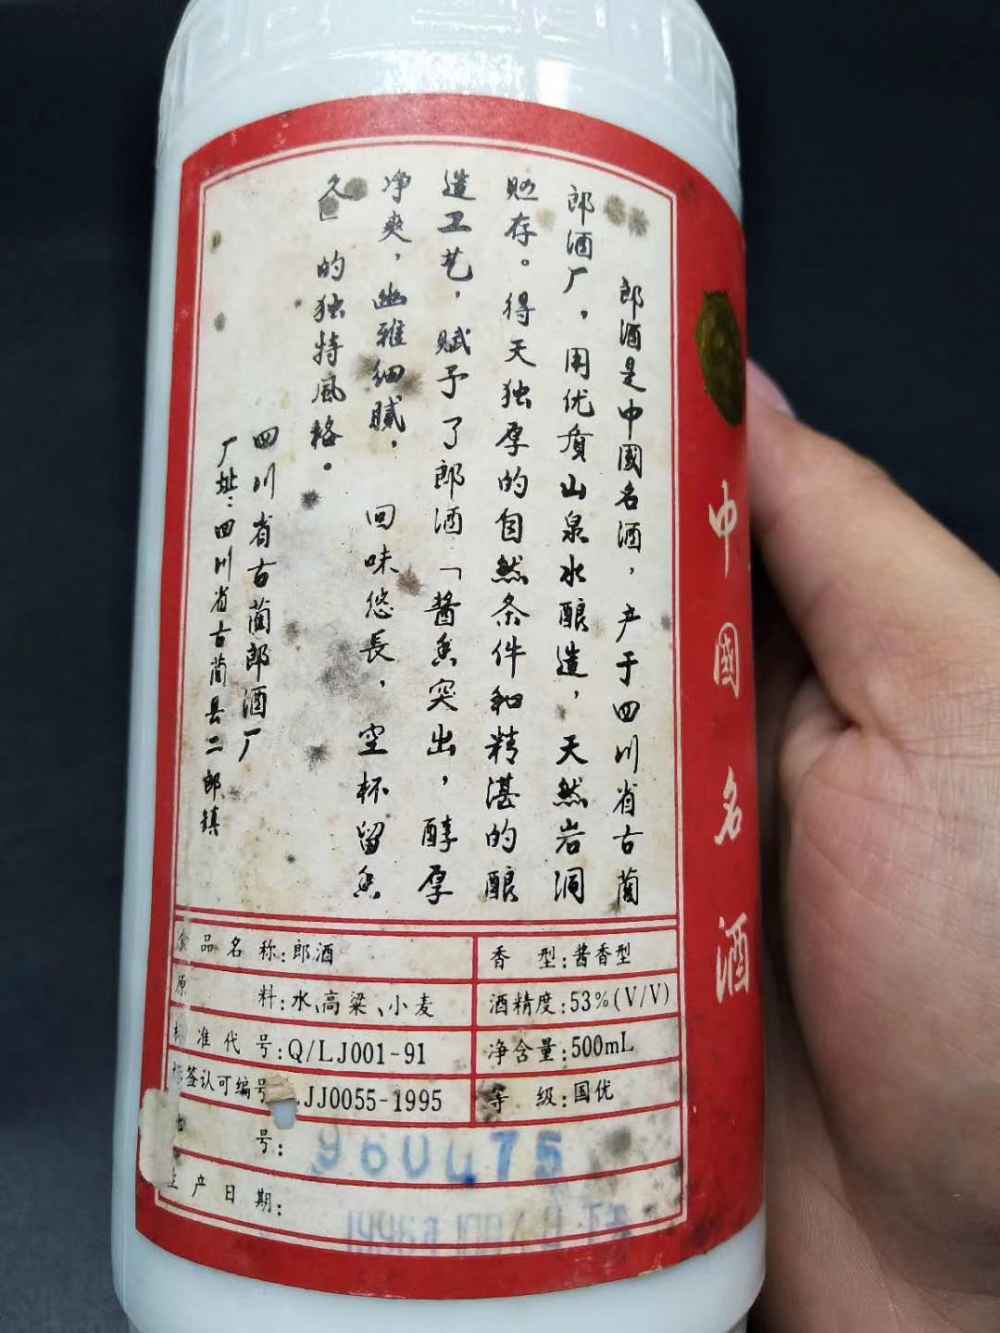 郎酒是中國名酒，产于四川省古蔺
郎酒厂，用优质山泉水酿造，天然岩洞
贮存。得天独厚的自然条件和精湛的酿
造工艺，赋予了郎酒「酱香突出，醇厚
净爽，幽雅细腻，回味悠長，空杯留香
久 的独特風格。
四川省古蔺郎酒厂
厂址：四川省古蔺县二郎镇
食品名称:郎酒
香型:酱香型
原料:水、高粱、小麦
酒精度:53%(V/V)
标准代号:Q/LJ001-91
净含量:500mL
标签认可编号 JJ0055-1995
等级:国优
号: 960475
生产日期:
中國名酒